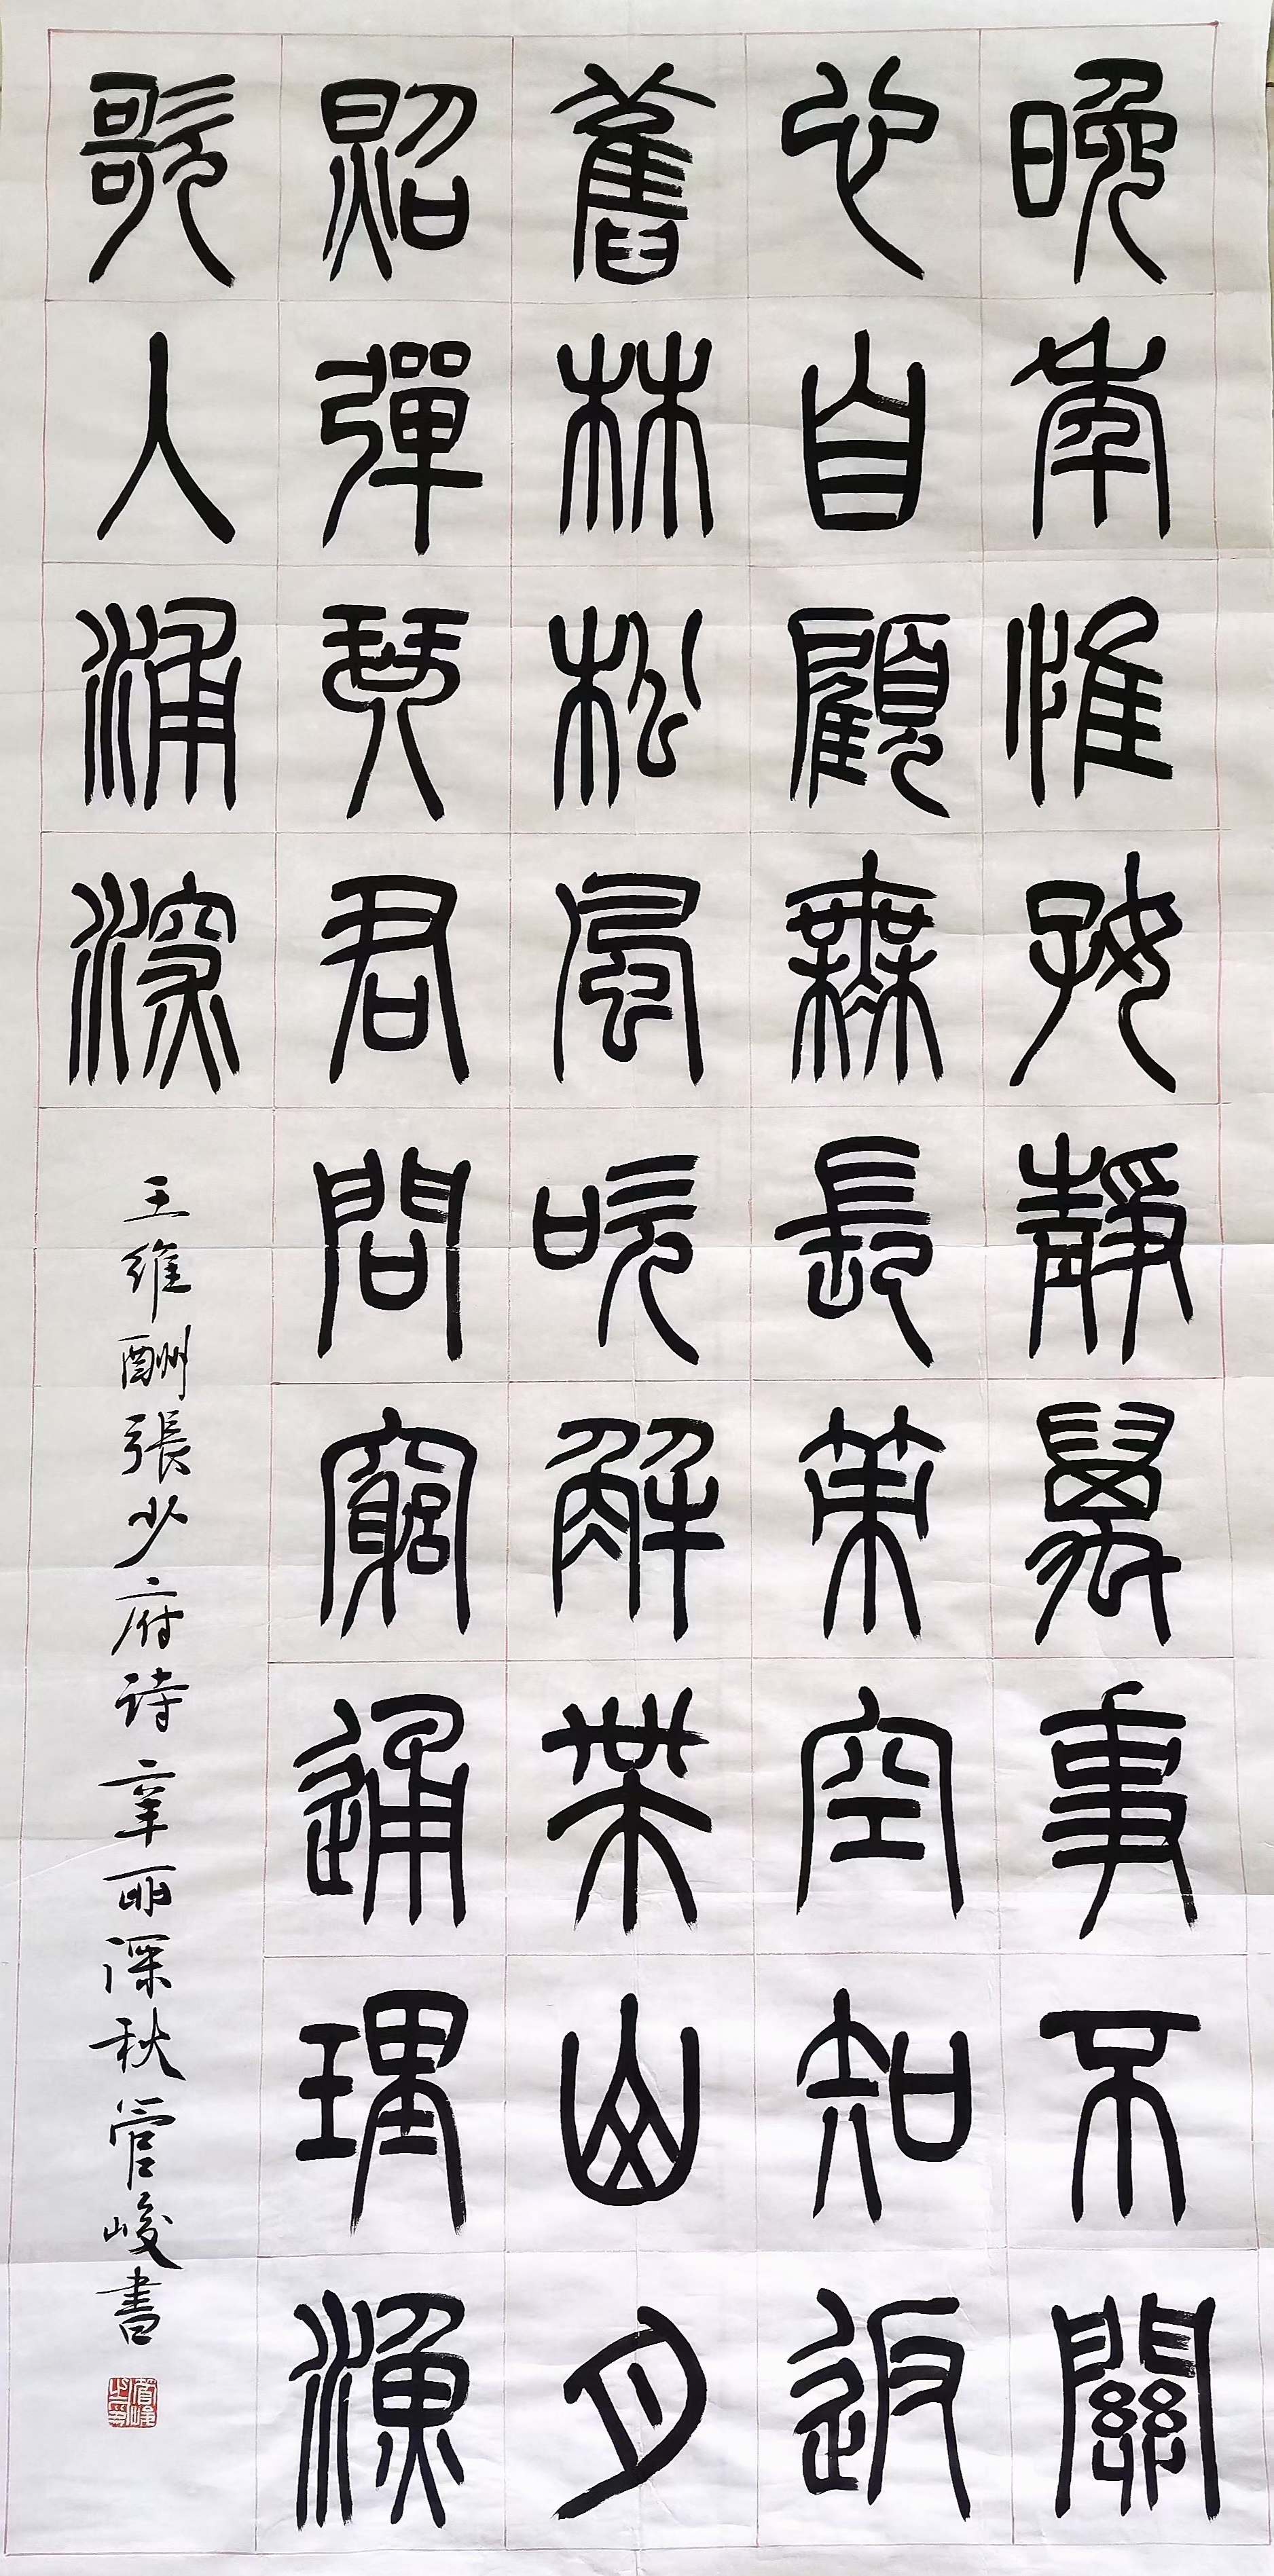 晚年惟好靜萬事不關
心自顧無長策空知返
舊林松風吹解帶山月
照彈琴君問窮通理漁
歌入浦深
王維酬張少府诗 辛丣深秋 管峻書
管峻之印